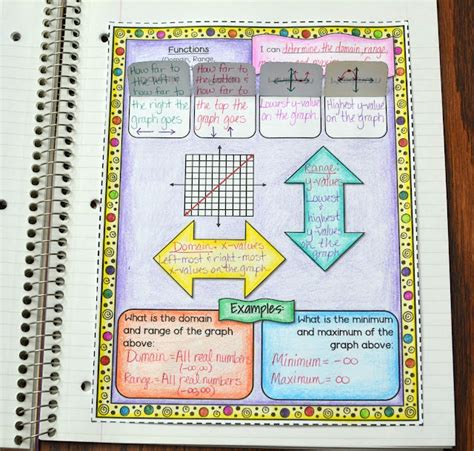 Functions
(Domain, Range,
I can determine the domain, range,
How far to
the left &
how far to
the right the
graph goes
How far to
the bottom &
how far to
the top the
graph goes
Lowest y-value
on the graph
Highest y-value
on the graph
Range:
y-values
Lowest
&
highest
y-values
on the
graph
Domain: x-values
left-most & right-most
x-values on the graph
Examples:
What is the domain
and range of the graph
above:
Domain = All real numbers
(-∞,∞)
Range = All real numbers
(-∞,∞)
What is the minimum
and maximum of the
graph above:
Minimum = -∞
Maximum = ∞